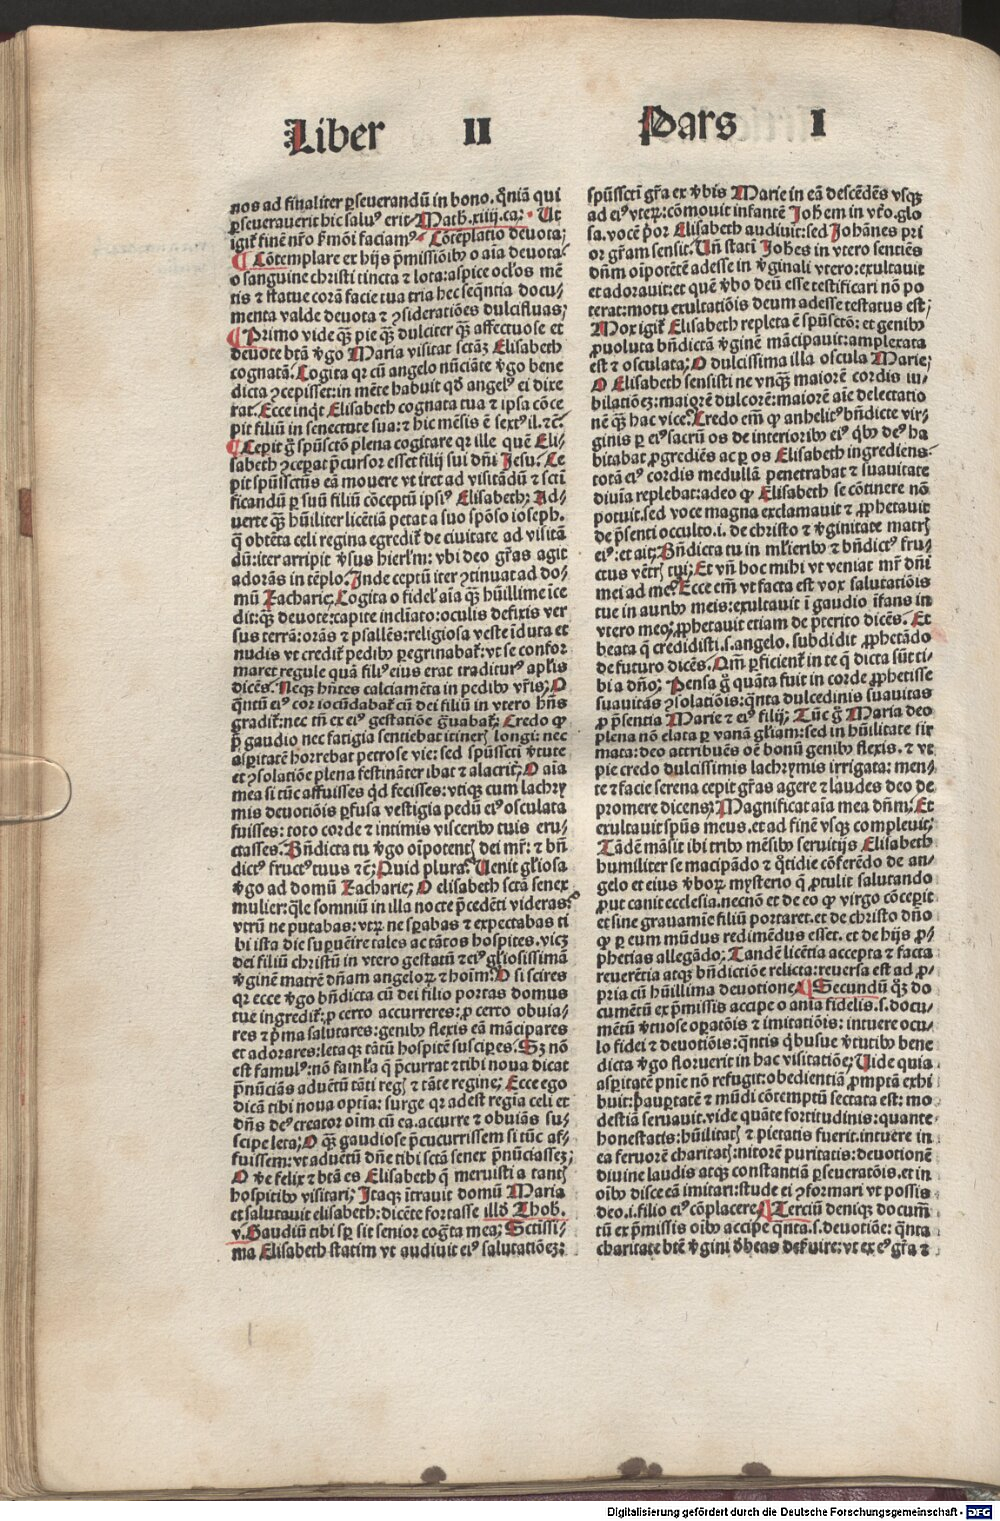 Liber II Pars I
nos ad finaliter ꝑseuerandū in bono. qm̄iā qui
ꝑseuerauerit hic saluꝰ erit. Math. xiiij. ca. Ut
igit᷑ finē nr̄o hmōi faciamꝰ. Cōtēplatio deuota;
Cōtemplare ex hijs p̄missiōibꝰ o aīa deuota
o sanguine christi tincta ⁊ lota: aspice oc̄los mē
tis ⁊ statue corā facie tua tria hec seq̄ntia docu-
menta valde deuota ⁊ ꝯsideratiōes dulcifluas;
Primo vide qꝫ pie qꝫ dulciter qꝫ affectuose et
deuote btā v̄go Maria visitat sctāꝫ Elisabeth
cognatā. Cogita qꝛ cū angelo nūciāte v̄go bene
dicta ꝯcepisset: in mēte habuit qd̄ angelꝰ ei dixe
rat. Ecce inqͥt Elisabeth cognata tua ⁊ ipsa cōce
pit filiū in senectute sua: ⁊ hic mēsis ē sextꝰ il. ⁊c̄.
Cepit g̊ spūsctō plena cogitare qꝛ ille quē Eli-
sabeth ꝯceꝑat p̄cursor esset filij sui dn̄i Jesu. Ce
pit spūssctūs eā mouere vt iret ad visitādū ⁊ scti
ficandū ꝑ suū filiū cōceptū ipsiꝰ Elisabeth; Ad-
uerte qꝫ hūiliter licētiā petat a suo spōso ioseph.
q̄ obtēta celi regina egredit᷑ de ciuitate ad visitā
dū: iter arripit v̄sus hierl̄m: vbi deo gr̄as agit
adorās in tēplo. Inde ceptū iter ꝯtinuat ad do-
mū Zacharie; Cogita o fidelꝭ aīa qꝫ hūillime īce
dit: qꝫ deuote: capite inclīato: oculis defixis ver
sus terrā: orās ⁊ psallēs: religiosa veste īduta et
nudis vt credit᷑ pedibꝰ ꝑegrinabat᷑: vt se confor
maret regule quā filiꝰ eius erat traditurꝰ apl̄is
dicēs. Neqꝫ hn̄tes calciamēta in pedibꝰ vr̄is; O
qͣntū eiꝰ cor iocūdabat᷑ cū dei filiū in vtero hn̄s
gradit᷑: nec tn̄ ex eiꝰ gestatiōe g̊uabat᷑; Credo ꝙ
p̄ gaudio nec fatigia sentiebat itinerꝭ longi: nec
asꝑitatē horrebat petrose vie: sed spūsscti v̄tute
et ꝯsolatiōe plena festināter ibat ⁊ alacrit̄; O aīa
mea si tūc affuisses qͥd fecisses: vtiqꝫ cum lachry
mis deuotiōis ꝑfusa vestigia pedū eiꝰ osculata
fuisses: toto corde ⁊ intimis visceribꝰ tuis eru-
ctasses. Bn̄dicta tu v̄go oīpotentꝭ dei mr̄: ⁊ bn̄
dictꝰ fructꝰ tuus ⁊c̄; Quid plura. Uenit gl̄iosa
v̄go ad domū Zacharie; O elisabeth sctā senex
mulier: qͣle somniū in illa nocte p̄cedēti videras:
vtrū ne putabas: vtꝝ ne sꝑabas ⁊ expectabas ti
bi ista die suꝑuēire tales ac tātos hospites. vicꝫ
dei filiū christū in vtero gestatū ⁊ eiꝰ gl̄iosissimā
v̄ginē matrē dn̄am angeloꝝ ⁊ hoīm. O si scires
qꝛ ecce v̄go bn̄dicta cū dei filio portas domus
tue ingredit᷑: ꝓ certo accurreres: ꝓ certo obuia-
res ⁊ p̄ma salutares: genibꝰ flexis eā mācipares
et adorares: letaqꝫ tātū hospitē susciꝑes. Sꝫ nō
est famulꝰ: nō famĺa q̄ p̄currat ⁊ tibi noua dicat
p̄nūciās aduētū tāti regꝭ ⁊ tāte regine; Ecce ego
dicā tibi noua optīa: surge qꝛ adest regīa celi et
dn̄s deꝰ creator oīm cū ea. accurre ⁊ obuiās su-
scipe leta; O qꝫ gaudiose p̄cucurrissem si tūc af-
fuissem: vt aduētū dn̄e tibi sctā senex p̄nūciassez;
O v̄e felix ⁊ btā es Elisabeth q̄ meruisti a tantꝭ
hospitibꝰ visitari; Itaqꝫ ītrauit domū Maria
et salutauit elisabeth: dicēte fortasse illd̄ Thob.
v. Gaudiū tibi sꝑ sit senior cogͣta mea; Sctissi-
ma Elisabeth statim vt audiuit eiꝰ salutatiōeꝫ:
spūssctī gr̄a ex v̄bis Marie in eā descēdēs vsqꝫ
ad eiꝰ vteꝝ: cōmouit infantē Joh̄em in vtr̄o. glo
sa. vocē p̄or Elisabeth audiuit: sed Johānes pri
or gr̄am sensit. Un̄ statī Joh̄es in vtero sentiēs
dn̄m oīpotētē adesse in v̄ginali vtero: exultauit
et adorauit: et quē v̄bo deū esse testificari nō po
terat: motu exultatiōis deum adesse testatus est;
Mox igit᷑ Elisabeth repleta ē spūsctō: et genibꝰ
ꝓuoluta bn̄dictā v̄ginē mācipauit: amplexata
est ⁊ osculata; O dulcissima illa oscula Marie;
O Elisabeth sensisti ne vnqꝫ maiorē cordis iu-
bilatiōeꝫ: maiorē dulcorē: maiorē aīe delectatio
nē qꝫ hac vice. Credo em̄ ꝙ anhelitꝰ bn̄dicte vir-
ginis ꝑ eiꝰ sacrū os de interioribꝰ eiꝰ qͥbꝰ deꝰ ha
bitabat ꝓgrediēs ac ꝑ os Elisabeth ingrediens
totā eiꝰ cordis medullā penetrabat ⁊ suauitate
diuīa replebat: adeo ꝙ Elisabeth se cōtinere nō
potuit. sed voce magna exclamauit ⁊ ꝓphetauit
de p̄senti occulto. i. de christo ⁊ v̄ginitate matrꝭ
eiꝰ: et ait; Bn̄dicta tu in ml̄ieribꝰ ⁊ bn̄dictꝰ fru-
ctus vētrꝭ tui; Et vn̄ hoc mihi vt veniat mr̄ dn̄i
mei ad me. Ecce em̄ vt facta est vox salutatiōis
tue in auribꝰ meis: exultauit ī gaudio īfans in
vtero meo; ꝓphetauit etiam de p̄terito dicēs. Et
beata q̄ credidisti. s. angelo. subdidit ꝓphetādo
de futuro dicēs. Qm̄ ꝑficient᷑ in te q̄ dicta sūt ti-
bi a dn̄o; Pensa g̊ quāta fuit in corde ꝓphetisse
suauitas ꝯsolatiōis: qͣnta dulcedinis suauitas
ꝓ p̄sentia Marie ⁊ eiꝰ filij; Tūc g̊ Maria deo
plena nō elata ꝑ vanā gl̄iam: sed in hūilitate fir
mata: deo attribuēs oē bonū genibꝰ flexis. ⁊ vt
pie credo dulcissimis lachrymis irrigata: men-
te ⁊ facie serena cepit gr̄as agere ⁊ laudes deo de
promere dicens; Magnificat aīa mea dn̄m; Et
exultauit spūs meus. et ad finē vsqꝫ compleuit;
Tādē māsit ibi tribꝰ mēsibꝰ seruitijs Elisabeth
humiliter se mācipādo ⁊ qͦtidie cōferēdo de an-
gelo et eius v̄boꝝ mysterio q̄ ꝓtulit salutando
ꝓut canit ecclesia. necnō et de eo ꝙ virgo cōceꝑit
et sine grauamīe filiū portaret. et de christo dn̄o
ꝙ ꝑ eum mūdus redimēdus esset. et de hijs ꝓ-
phetias allegādo; Tandē licētia accepta ⁊ facta
reuerētia atqꝫ bn̄dictiōe relicta: reuersa est ad ꝓ-
pria cū hūillima deuotione; Secundū qꝫ do
cumētū ex p̄missis accipe o ania fidelis. s. docu-
mētū v̄tuose oꝑatōis ⁊ imitatiōis: intuere ocu-
lo fidei ⁊ deuotiōis: qͣntis qͥbusue v̄tutibꝰ bene
dicta v̄go floruerit in hac visitatiōe; Uide quia
asꝑitatē pn̄ie nō refugit: obedientiā ꝓmptā exhi
buit: pauꝑtatē ⁊ mūdi cōtemptū sectata est: mo
destiā seruauit. vide quāte fortitudinis: quante
honestatis: hūilitatꝭ ⁊ pietatis fuerit. intuere in
ea feruorē charitatꝭ: nitorē puritatis: deuotionē
diuine laudis atqꝫ constantiā ꝑseueratōis. et in
oībꝰ disce eā imitari: stude ei ꝯformari vt possis
deo. i. filio eiꝰ cōplacere; Terciū deniqꝫ documē
tū ex p̄missis oībꝰ accipe qͣnta. s. deuotiōe: qͣnta
charitate btē v̄gini d̄beas def̄uire: vt ex eꝰ gr̄a ⁊
Digitalisierung gefördert durch die Deutsche Forschungsgemeinschaft - DFG